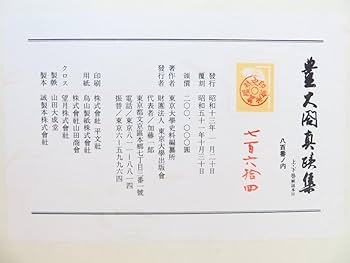 豊大閤真蹟集
上・下巻 解説各冊
八百部ノ内
七百六拾四
發行 昭和十三年一月二十日
覆刻 昭和五十一年十月三十日
頒價 二〇〇、〇〇〇圓
著作者 東京大學史料編纂所
發行者 財團法人 東京大學出版會
代表者 加藤一郎
東京都文京區本郷七丁目三番一號
電話/東京八一一-八八一四
振替/東京六-五九九六四
印刷 株式會社 平文社
用紙 鳥山製紙株式會社
クロス 望月株式會社
製帙 株式會社山田商會
山田大成堂
製本 誠製本株式會社